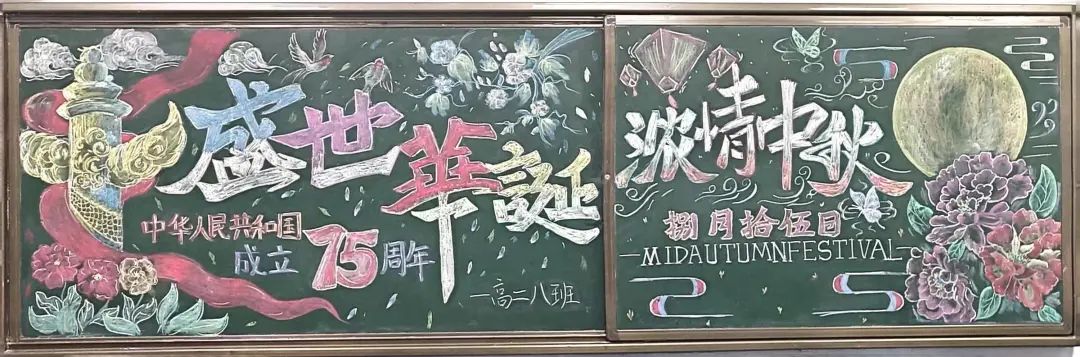 盛世華誕
中华人民共和国
成立75周年
一高二八班
浓情中秋
捌月拾伍日
MIDAUTUMNFESTIVAL